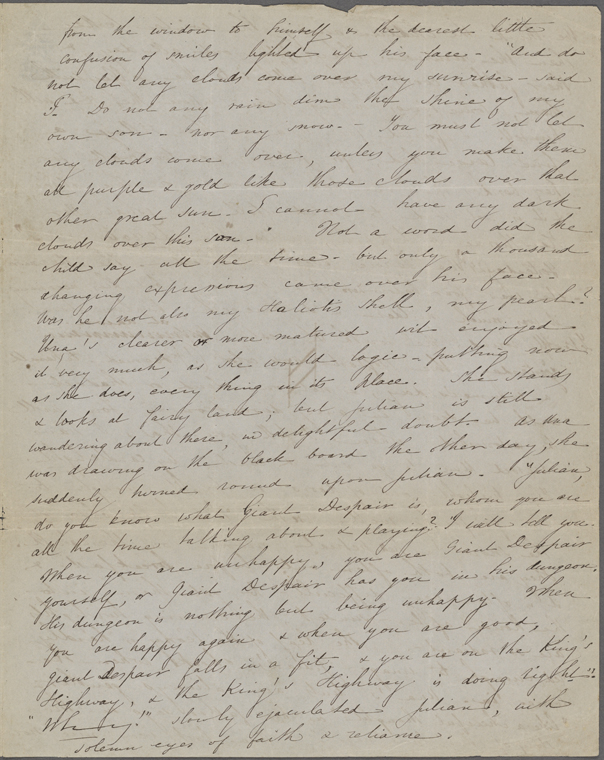 from the window to himself & the dearest little
confusion of smiles lighted up his face - "And do
not let any clouds come over my sunrise - said
I. Do not any rain dim the shine of my
own son - nor any snow - - You must not let
any clouds come over, unless you make them
all purple & gold like those clouds over that
other great sun - I cannot have any dark
clouds over this son - " Not a word did the
child say all the time - but only a thousand
changing expressions came over his face -
Was he not also my Haliotis shell, my pearl?
Una's clearer or more matured wit enjoyed
it very much, as she would logic - putting now
as she does, every thing in its place. She stands
& looks at fairy land; but Julian is still
wandering about there, in delightful doubt. As Una
was drawing on the black board the other day, she
suddenly turned round upon Julian - "Julian,
do you know what Giant Despair is, whom you are
all the time talking about & playing? I will tell you.
When you are unhappy, you are Giant Despair
yourself, or Giant Despair has you in his dungeon.
His dungeon is nothing but being unhappy. When
you are happy again & when you are good,
Giant Despair falls in a fit, & you are on the King's
Highway, & the King's Highway is doing right."
slowly ejaculated Julian, with
solemn eyes of faith & reliance.